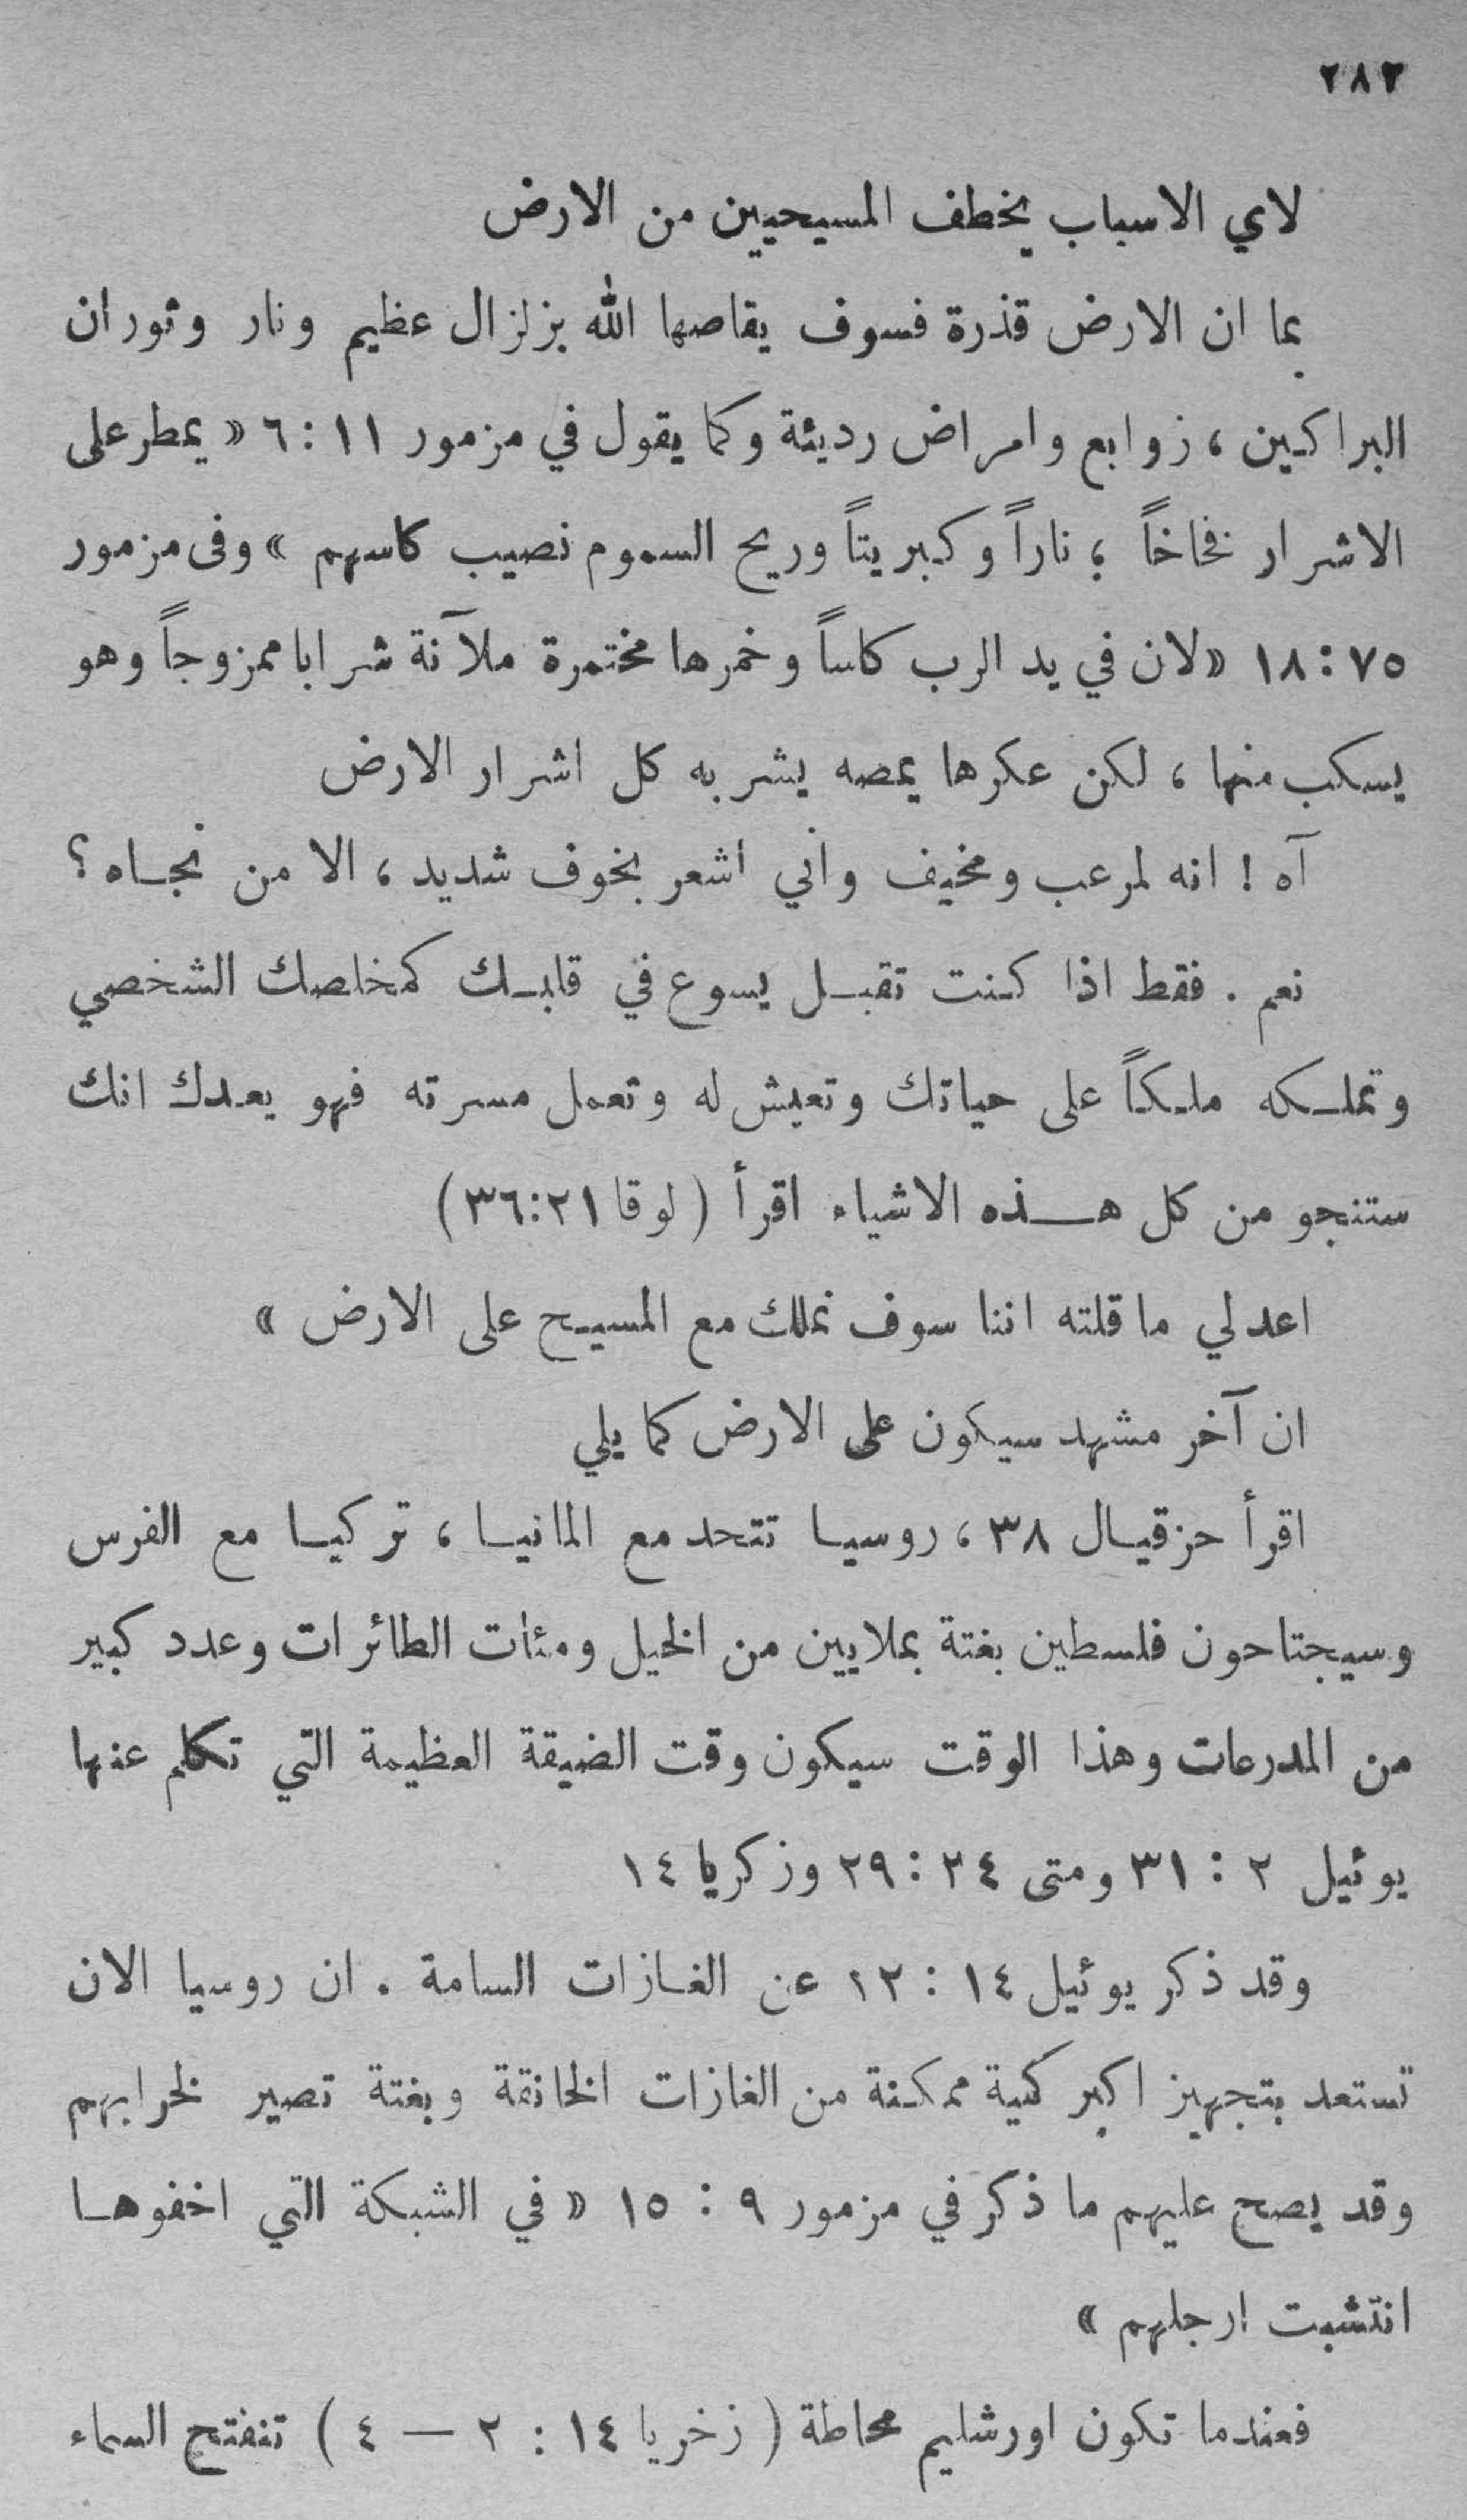 ٢٨٢
لاي الاسباب يخطف المسيحيين من الارض
بما ان الارض قذرة فسوف يقاصها الله بزلزال عظيم ونار وثوران
البراكين ، زوابع وامراض رديئة وكما يقول في مزمور ١١ : ٦ « يمطر على
الاشرار فخاخاً ؛ ناراً وكبريتاً وريح السموم نصيب كاسهم » وفى مزمور
٧٥ : ١٨ « لان في يد الرب كاساً وخمرها مختمرة ملآنة شرابا ممزوجاً وهو
يسكب منها ، لكن عكرها يمصه يشربه كل اشرار الارض
آه ! انه لمرعب ومخيف واني اشعر بخوف شديد ، الا من نجاه ؟
نعم . فقط اذا كنت تقبل يسوع في قلبك كمخلصك الشخصي
وتملكه ملكاً على حياتك وتعيش له وتعمل مسرته فهو يعدك انك
ستنجو من كل هذه الاشياء اقرأ ( لوقا ٢١:٣٦ )
اعد لي ما قلته اننا سوف نملك مع المسيح على الارض »
ان آخر مشهد سيكون على الارض كما يلي
اقرأ حزقيال ٣٨ ، روسيا تتحد مع المانيا ، تركيا مع الفرس
وسيجتاحون فلسطين بغتة بملايين من الخيل ومئات الطائرات وعدد كبير
من المدرعات وهذا الوقت سيكون وقت الضيقة العظيمة التي تكلم عنها
يوئيل ٢ : ٣١ ومتى ٢٤ : ٢٩ وزكريا ١٤
وقد ذكر يوئيل ١٤ : ١٢ عن الغازات السامة . ان روسيا الان
تستعد بتجهيز اكبر كمية ممكنة من الغازات الخانقة وبغتة تصير لخرابهم
وقد يصح عليهم ما ذكر في مزمور ٩ : ١٥ « في الشبكة التي اخفوها
انتشبت ارجلهم »
فعندما تكون اورشليم محاطة ( زخريا ١٤ : ٢ — ٤ ) تنفتح السماء